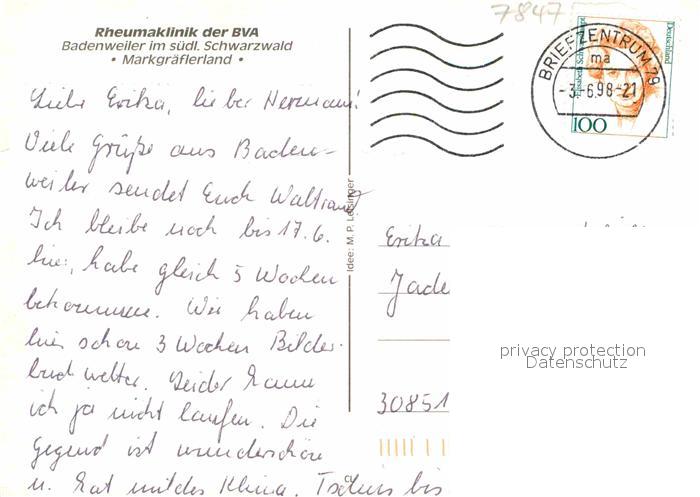 7847
Rheumaklinik der BVA
Badenweiler im südl. Schwarzwald
• Markgräflerland •
Liebe Erika, lieber Hermann!
Viele Grüße aus Baden-
weiler sendet Euch Waltraud
Ich bleibe noch bis 17.6.
hier, habe gleich 5 Wochen
bekommen. Wir haben
hier schon 3 Wochen Bilder-
buchwetter. Leider kann
ich ja nicht laufen. Die
Gegend ist wunderschön
u. hat mildes Klima. Tschüs bis
Idee: M. P. Leisinger
BRIEFZENTRUM 79
ma
-3.-6.98-21
Deutschland
100
Erika
Jade
30851
privacy protection
Datenschutz